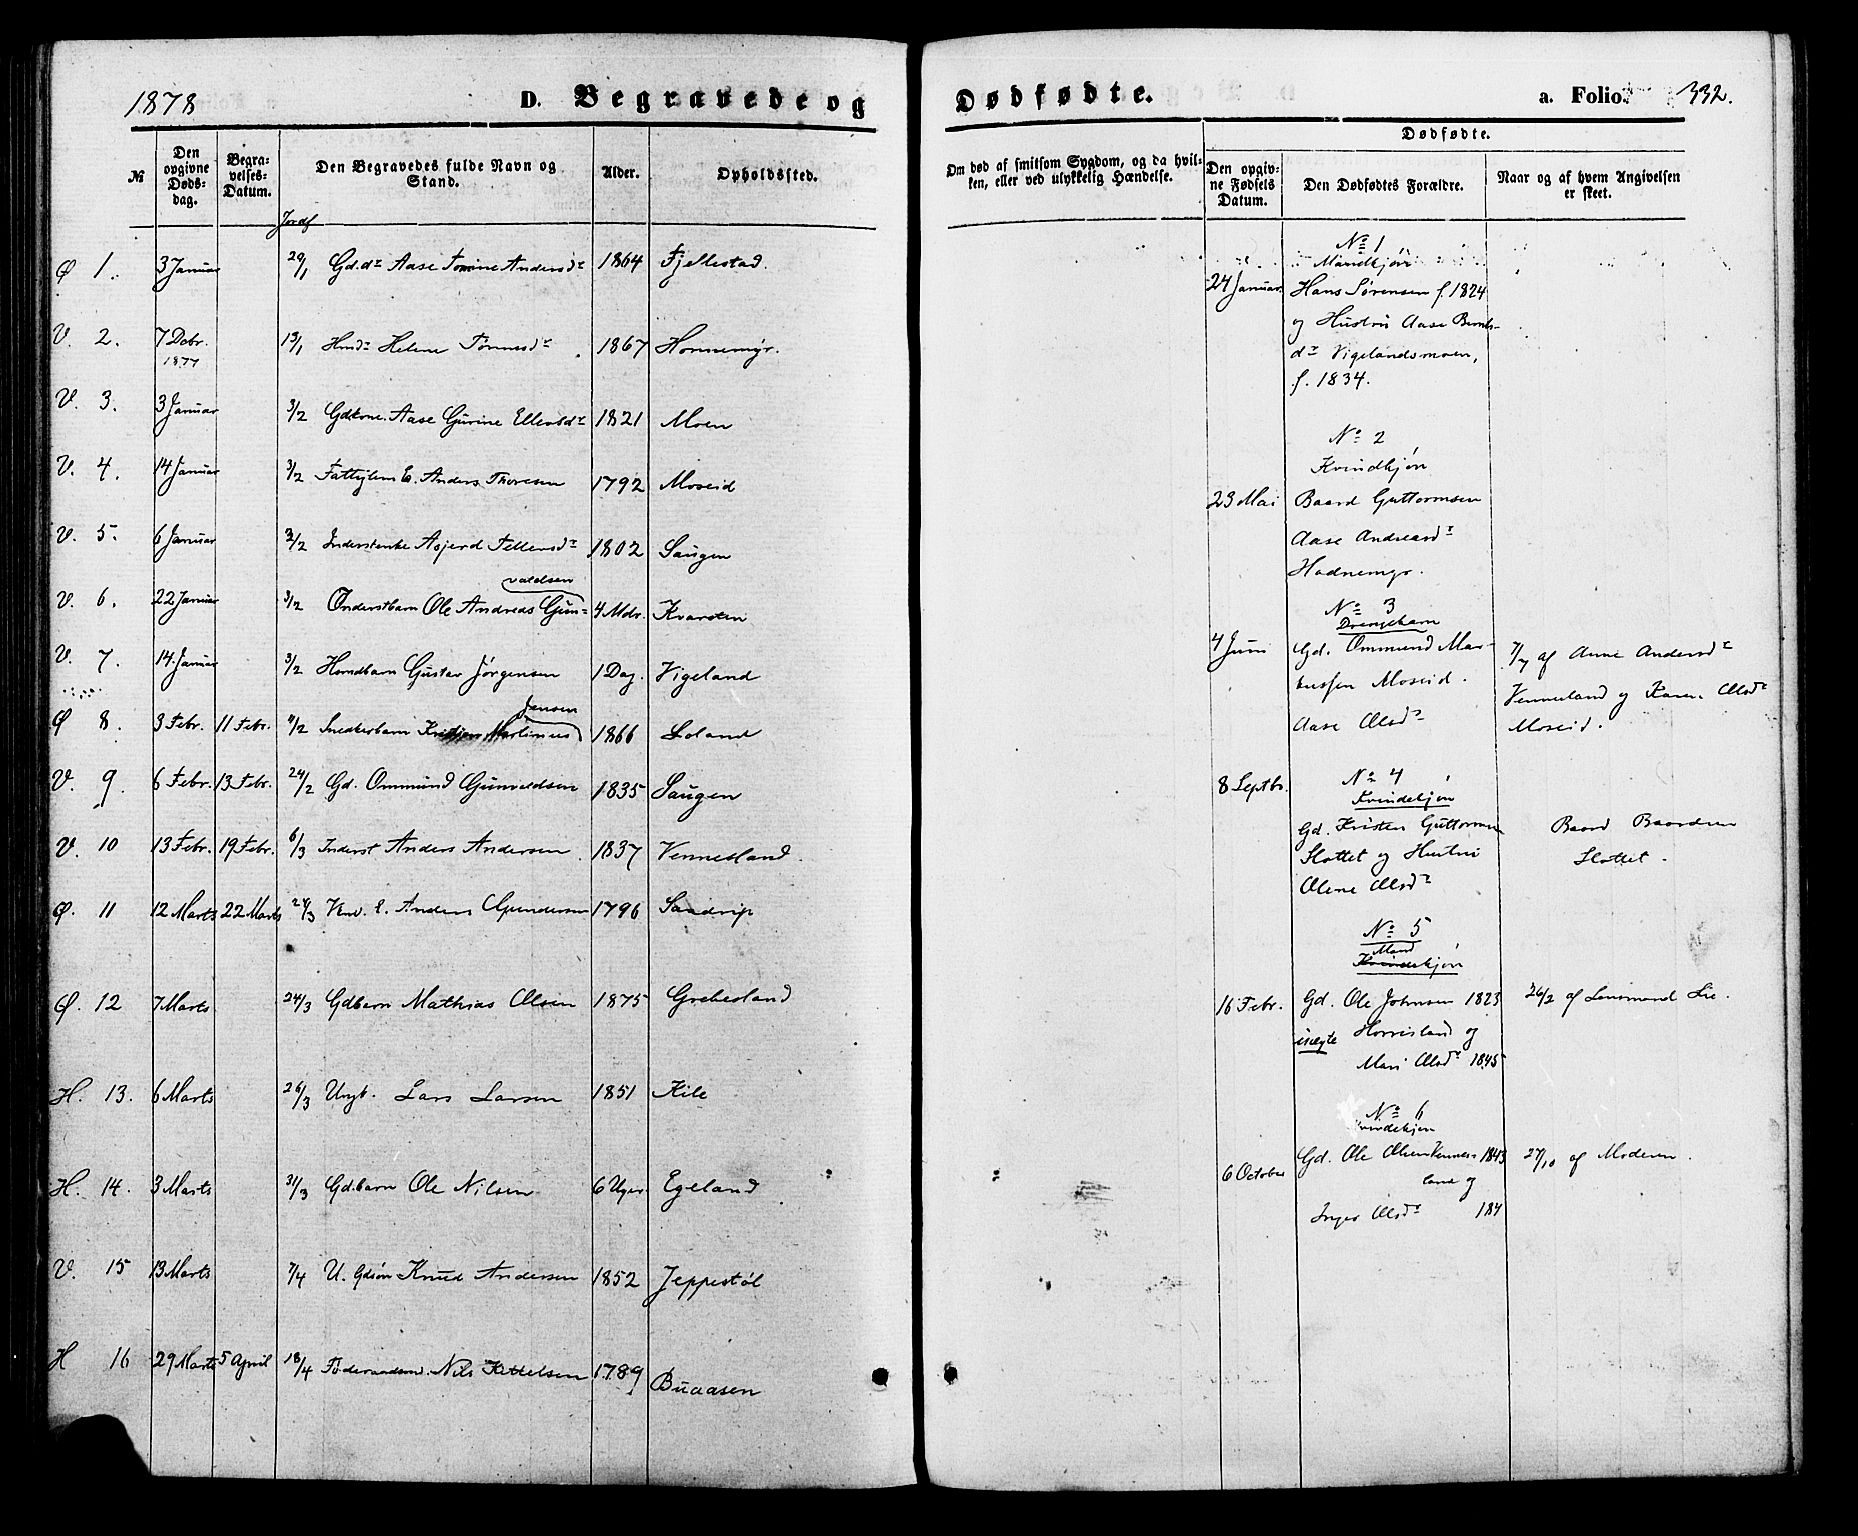 1878
D. Begravede og
№
Den opgivne Døds-dag.
Begra-velses-Datum.
Den Begravedes fulde Navn og Stand.
Alder.
Opholdssted.
Jordf
Ø 1. 3 Januar 29/1 Gd.dr Aase Tomine Andersdr 1864 Fjellestad.
V. 2. 7 Debr. 1877 13/1 Helene Tønnesdr 1867 Honnemyr.
V. 3. 3 Januar 3/2 Gdkone. Aase Gurine Ellevsdr 1821 Moen
V. 4. 14 Januar 3/2 Fattiglem E. Anders Thoresen 1792 Moseid
V. 5. 6 Januar 3/2 Inderstenke Asjerd Tellevsdr 1802 Saugen
V. 6. 22 Januar 3/2 Inderstbarn Ole Andreas Gun-valdsen 4 Mdr. Kvarsten
V. 7. 14. Januar 3/2 Gustav Jørgensen 1 Dag. Vigeland
Ø 8. 3 Febr. 11 Febr. 11/2 Snedkerbarn Kristjan Martinius Jansen 1866 Loland
V. 9. 6 Febr. 13 Febr. 24/2 Gd. Ommund Gunvaldsen 1835 Saugen
V. 10 13 Febr. 19 Febr. 6/3 Inderst Anders Andersen 1837 Vennesland.
Ø. 11 12 Marts 22 Marts 24/3 Anders 1796 Saadvip
Ø. 12 7 Marts 24/3 Gdbarn Mathias Olsen 1875 Grebesland
H. 13. 6 Marts 26/3 Ungk. Lars Larsen 1851 Kile
H. 14. 3 Marts 31/3 Gd.barn Ole Nilsen 6 Uger Egeland
V. 15 13 Marts 7/4 U. Gdsøn Knud Andersen 1852 Jeppestøl
H 16 29 Marts 5 April 18/4 Føderaadsmd. Nils Kittelsen 1789 Buaasen
Dødfødte.
a. Folio. 332.
Om død af smitsom Sygdom, og da hvil-ken, eller ved ulykkelig Hændelse.
Dødfødte.
Den opgiv-ne Fødsels Datum.
Den Dødfødtes Forældre.
Naar og af hvem Angivelsen er skeet.
No 1
Mandkjøn
24 Januar. Hans Sørensen f. 1824
og Hustru Aase Bernts-
dr Vigelandsmoen,
f. 1834.
No 2
Kvindkjøn
23 Mai Baard Guttormsen
Aase Andreasdr
Hodnemyr.
No 3
Drengebarn
4 Juni Gd. Ommund Mar-
kussen Moseid.
Aase Olsdr
7/7 af Anne Andersdr
Vennesland og Karen Olsdr
Moseid.
8 Septbr. No 4
Kvindekjøn
Gd. Kristen Guttormsen
Slottet og Hustru
Olene Olsdr
Baard Baardsen
Slottet.
No 5
Mand
Kvindekjøn
16 Febr. Gd. Ole Johnsen 1823
uægte Horrisland og
Mari Olsdr 1845
26/2 af Lensmand Lie.
No 6
Kvindekjøn
6 October Gd. Ole Olsen Vennes- 1843
land og
Inger Olsdr 184
27/10 af Moderen.